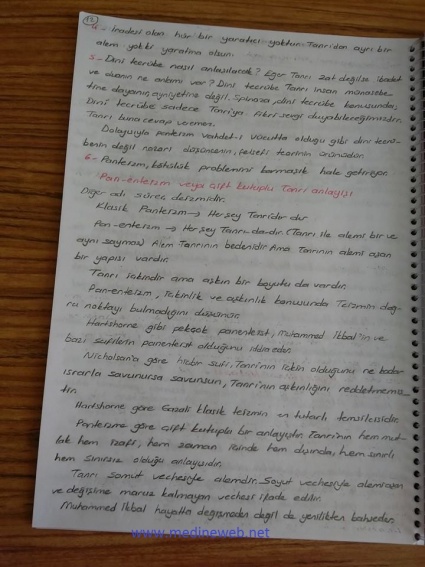 13
4- İradesi olan hür bir yaratıcı yoktur. Tanrı'dan ayrı bir
alem yokki yaratma olsun.
5- Dini tecrübe nasıl anlaşılacak? Eğer Tanrı zat değilse ibadet
ve duanın ne anlamı var? Dini tecrübe Tanrı insan münasebe-
tine dayanır, ayniyetine değil. Spinoza, dini tecrübe konusunda;
Dini tecrübe sadece Tanrıya fikri sevgi duyabileceğimizdir.
Tanrı buna cevap veremez.
Dolayısıyla panteizm vahdet-i vücutta olduğu gibi dini tecrü-
benin değil nazari düşüncenin, felsefi teorinin ürünüdür.
6- Panteizm, kötülük problemini karmaşık hale getiriyor.
Pan-enteizm veya çift kutuplu Tanrı anlayışı
Diğer adı süreç deizmidir.
Klasik Panteizm → Herşey Tanrı'dır dır
Pan-enteizm → Herşey Tanrı-da-dır. (Tanrı ile alemi bir ve
aynı saymaz) Alem Tanrının bedenidir Ama Tanrının alemi aşan
bir yapısı vardır.
Tanrı içkindir ama aşkın bir boyutu da vardır.
Pan-enteizm, içkinlik ve aşkınlık konusunda Teizmin doğ-
ru noktayı bulmadığını düşünür.
Hartshorne gibi pekçok panenteist, Muhammed İkbal'in ve
bazı sufilerin panenteist olduğunu iddia eder.
Nicholson'a göre hiçbir sufi, Tanrı'nın içkin olduğunu ne kadar
ısrarla savunursa savunsun, Tanrı'nın aşkınlığını reddetmemiş-
tir.
Hartshorne göre Gazali klasik teizmin en tutarlı temsilcisidir.
Panteizme göre çift kutuplu bir anlayıştır. Tanrı'nın hem mut-
lak hem izafi, hem zaman içinde hem dışında, hem sınırlı
hem sınırsız olduğu anlayışıdır.
Tanrı somut vechesiyle alemdir. Soyut vechesiyle alemi aşan
ve değişime maruz kalmayan vechesi ifade edilir.
Muhammed İkbal hayatta değişmeden değil de yenilikten bahseder.
www.medineweb.net